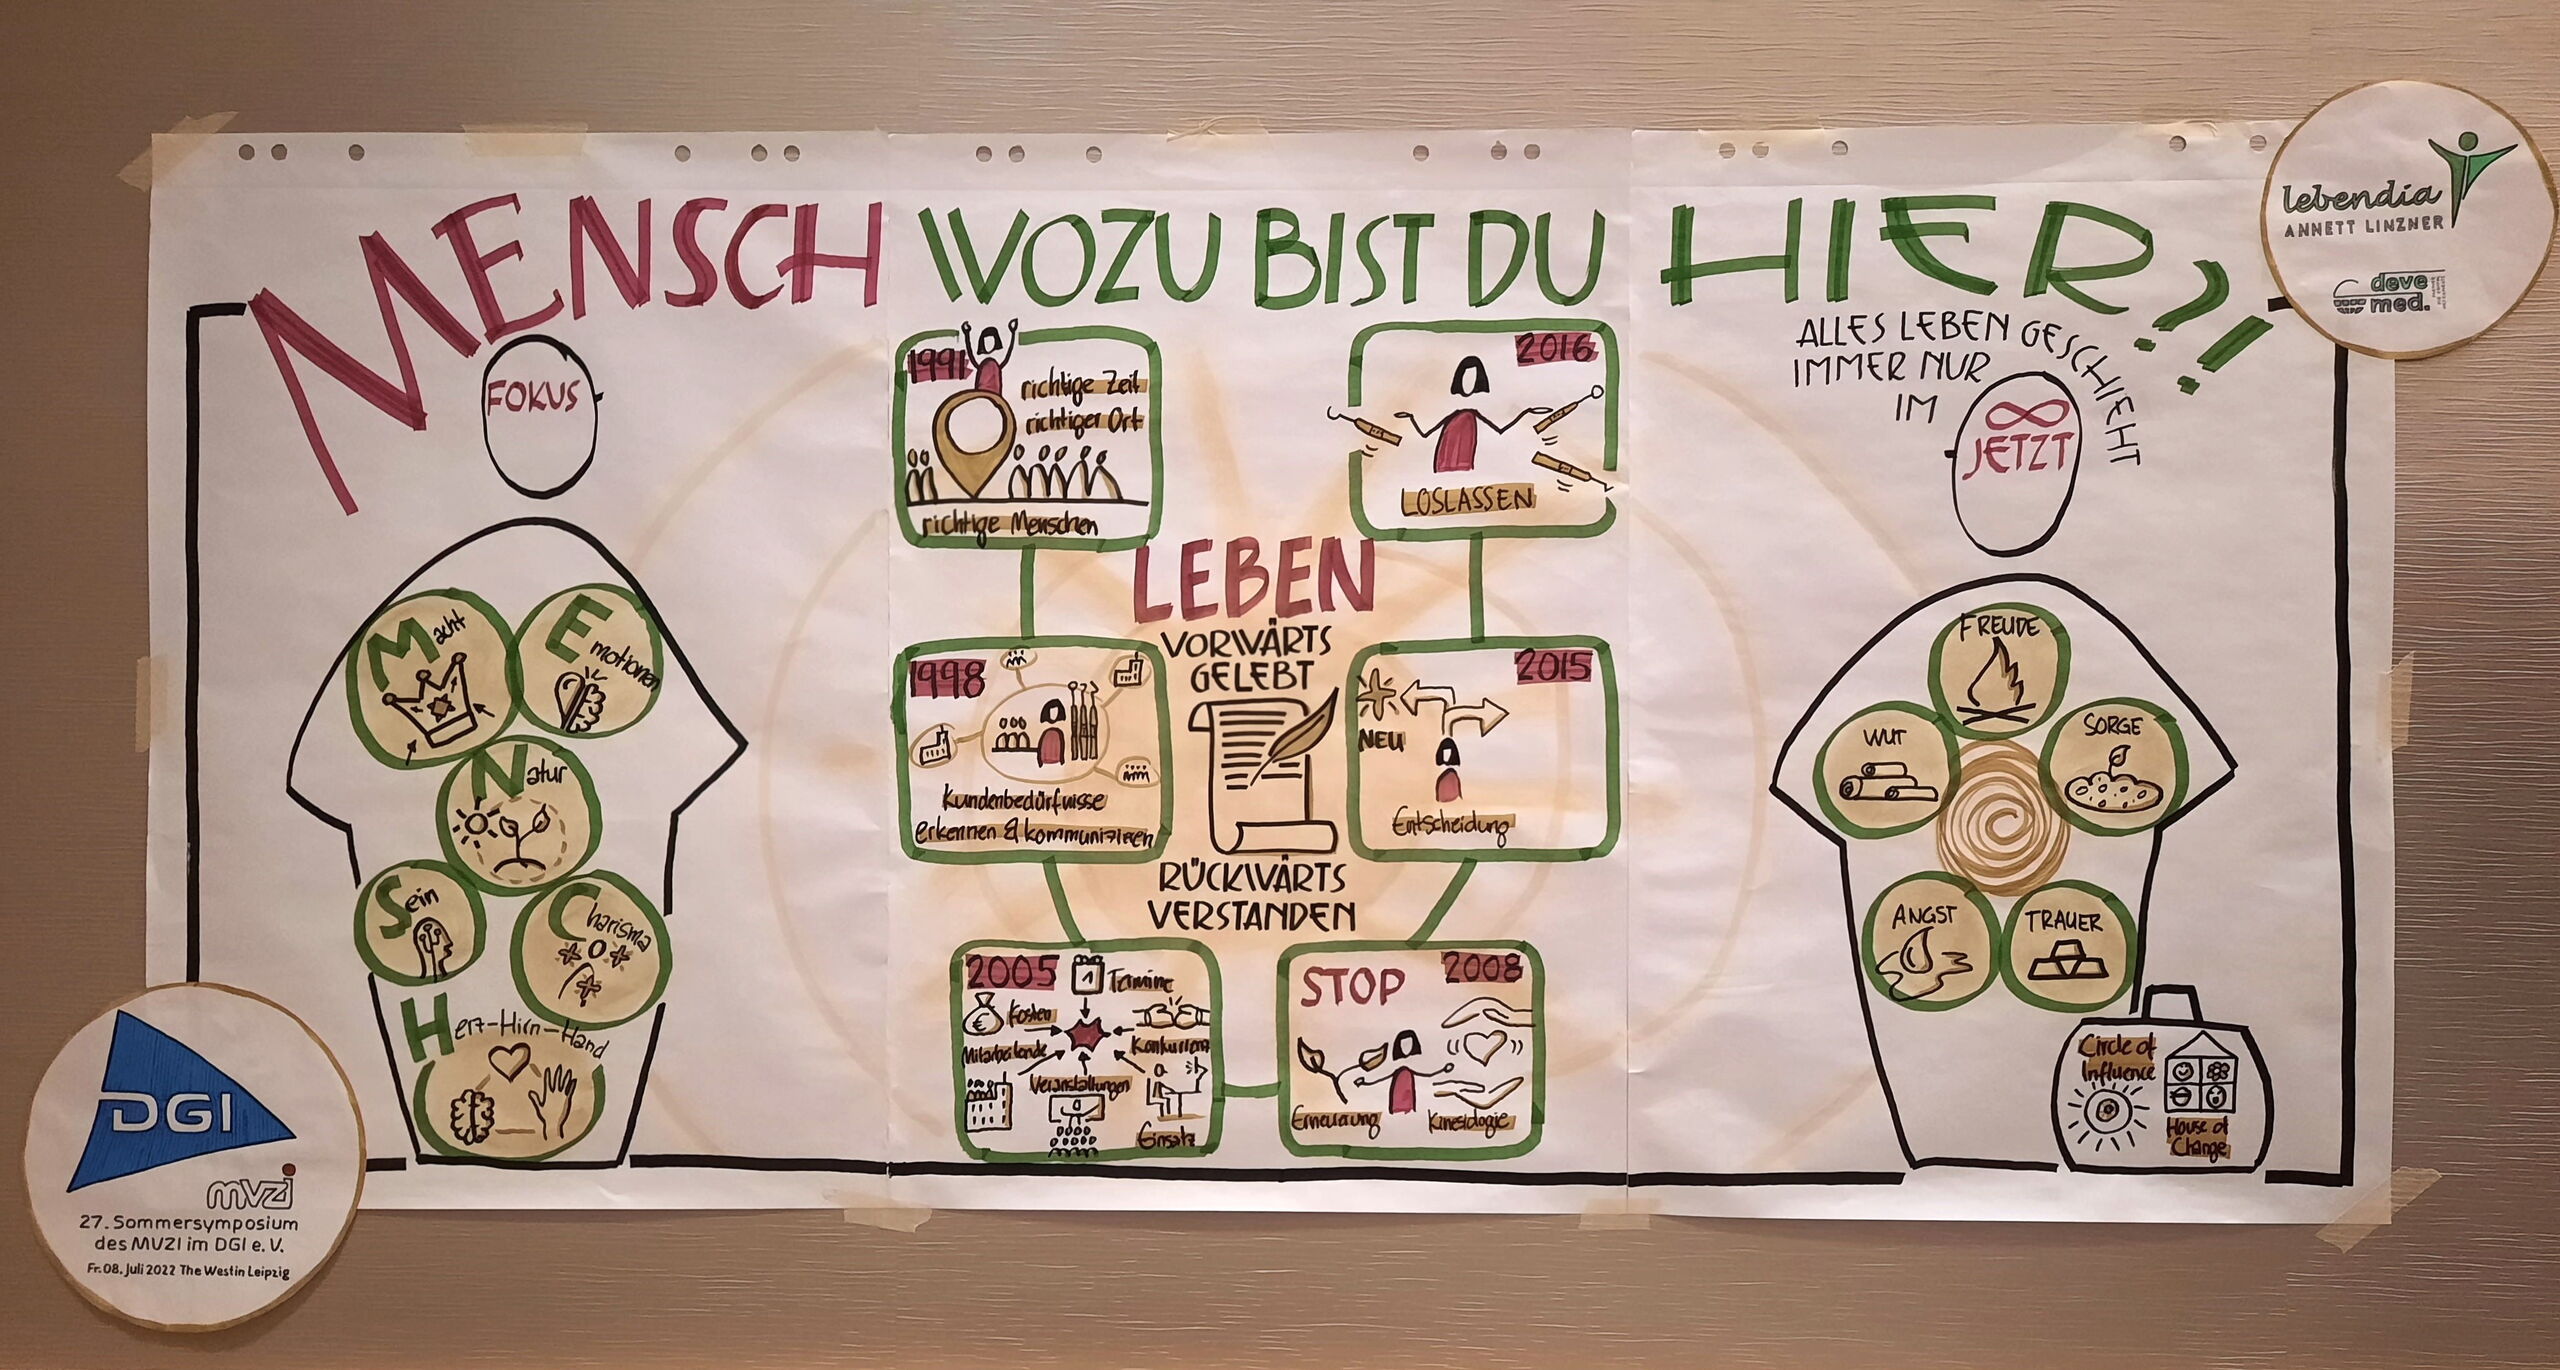 MENSCH WOZU BIST DU HIER?!
lebendia
ANNETT LINZNER
deve
med.
FOKUS
Macht
Emotionen
Natur
Sein
Charisma
Herz-Hirn-Hand
1991
richtige Zeit
richtiger Ort
richtige Menschen
2016
LOSLASSEN
LEBEN
VORWÄRTS
GELEBT
RÜCKWÄRTS
VERSTANDEN
1998
Kundenbedürfnisse
erkennen & kommunizieren
2015
NEU
Entscheidung
2005
1
Termine
€
Kosten
Mitarbeitende
Konkurrenz
Veranstaltungen
Einsatz
STOP
2008
Erneuerung
Kinesiologie
ALLES LEBEN GESCHIEHT
IMMER NUR
IM
JETZT
FREUDE
WUT
SORGE
ANGST
TRAUER
Circle of
Influence
House of
Change
DGI
mvzi
27. Sommersymposium
des MVZI im DGI e. V.
Fr. 08. Juli 2022 The Westin Leipzig